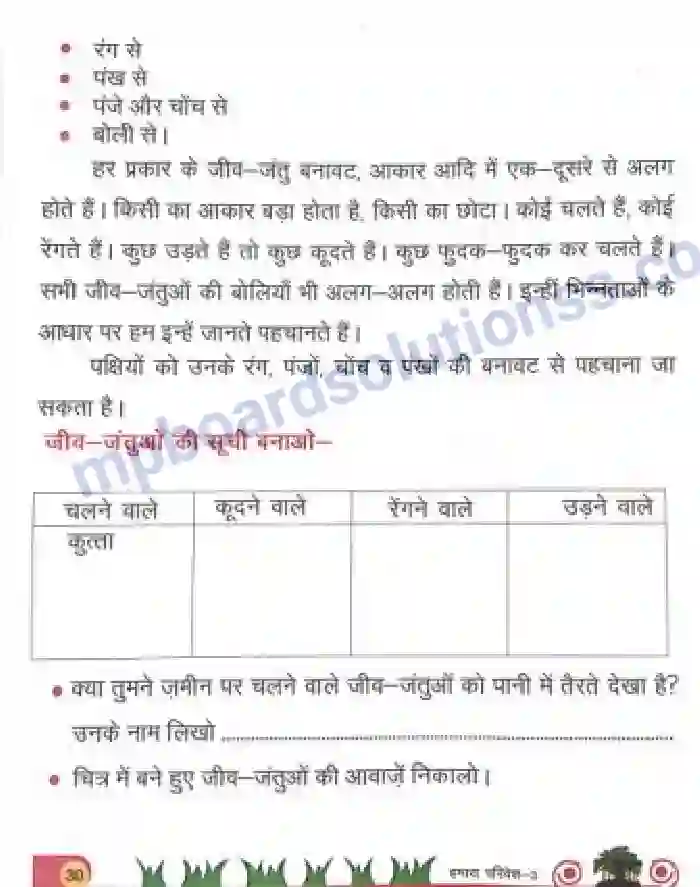 रंग से
पंख से
पंजे और चोंच से
बोली से।
हर प्रकार के जीव–जंतु बनावट, आकार आदि में एक–दूसरे से अलग
होते हैं। किसी का आकार बड़ा होता है, किसी का छोटा। कोई चलते हैं, कोई
रेंगते हैं। कुछ उड़ते हैं तो कुछ कूदते हैं। कुछ फुदक–फुदक कर चलते हैं।
सभी जीव–जंतुओं की बोलियाँ भी अलग–अलग होती हैं। इन्हीं भिन्नताओं के
आधार पर हम इन्हें जानते पहचानते हैं।
पक्षियों को उनके रंग, पंजों, चोंच व पंखों की बनावट से पहचाना जा
सकता है।
जीव–जंतुओं की सूची बनाओ–
चलने वाले कूदने वाले रेंगने वाले उड़ने वाले
कुत्ता
क्या तुमने ज़मीन पर चलने वाले जीव–जंतुओं को पानी में तैरते देखा है?
उनके नाम लिखो
चित्र में बने हुए जीव–जंतुओं की आवाज़ें निकालो।
30 हमारा परिवेश–3
mpboardsolutionss.co